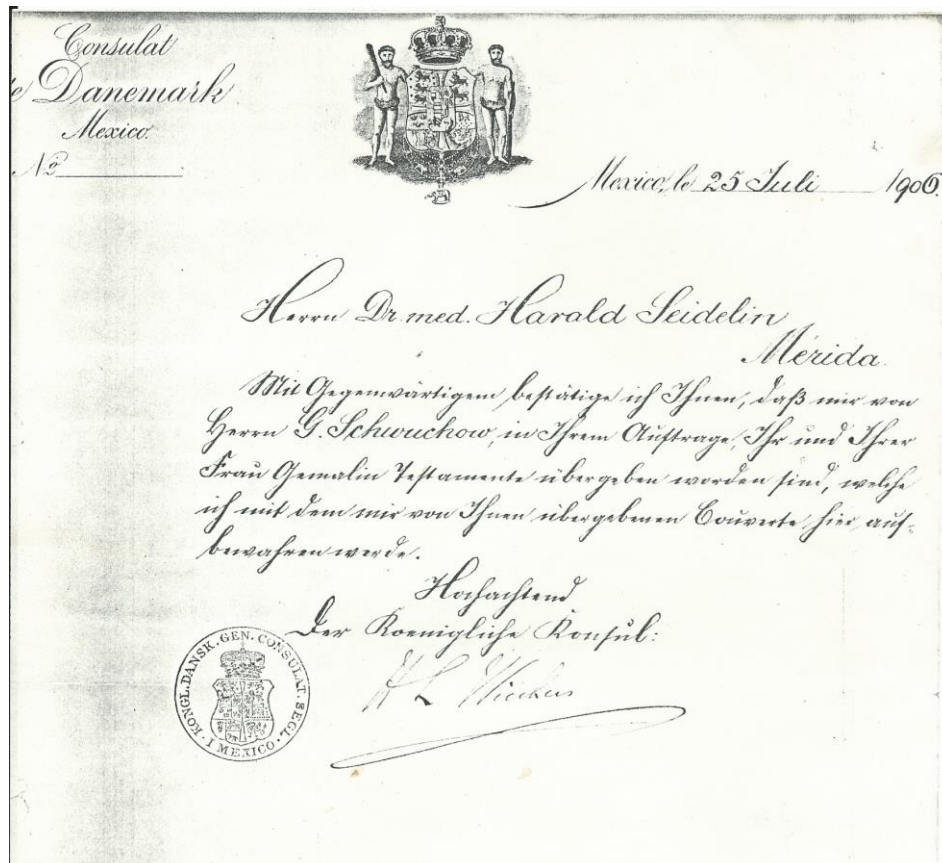 Consulat
de Danemark
Mexico.
No
Mexico, le 25 Juli 1906.
Herrn Dr. med. Harald Seidelin
Mérida.
Mit Gegenwärtigem bestätige ich Ihnen, daß mir von
Herrn G. Schwuchow, in Ihrem Auftrage, Ihr und Ihrer
Frau Gemalin Testamente übergeben worden sind, welche
ich mit dem mir von Ihnen übergebenen Couverte hier auf-
bewahren werde.
Hochachtend
Der Koenigliche Konsul:
KONGL. DANSK. GEN. CONSULAT. SEGL. I MEXICO.